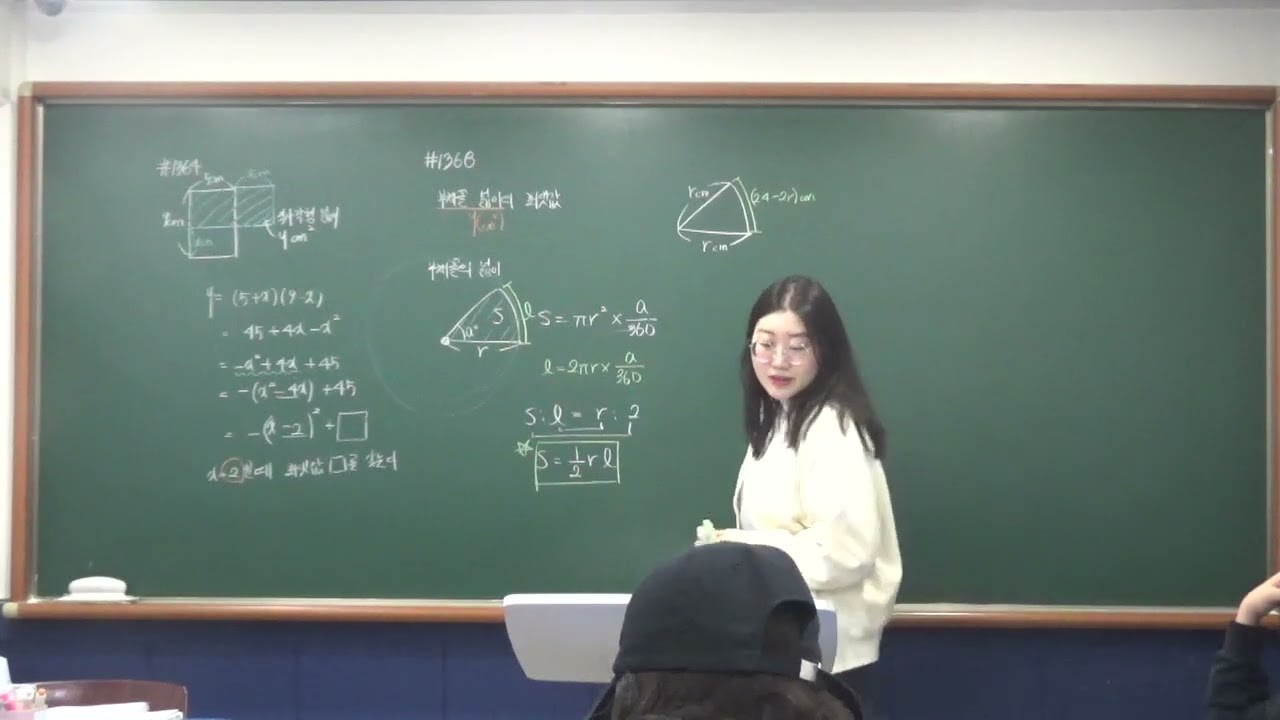 #1364
xcm
4cm²
y = (5+x)(9-x)
= 45+4x-x²
= -x²+4x+45
= -(x²-4x)+45
= -(x-2)²+□
x=2일 때 최댓값 □를 갖는다
#1368
부채꼴 넓이의 최댓값
y(cm²)
부채꼴의 넓이
S
l
a°
r
S = πr² × a/360
l = 2πr × a/360
S : l = r : 2
☆ S = 1/2 r l
rcm
(24-2r)cm
rcm